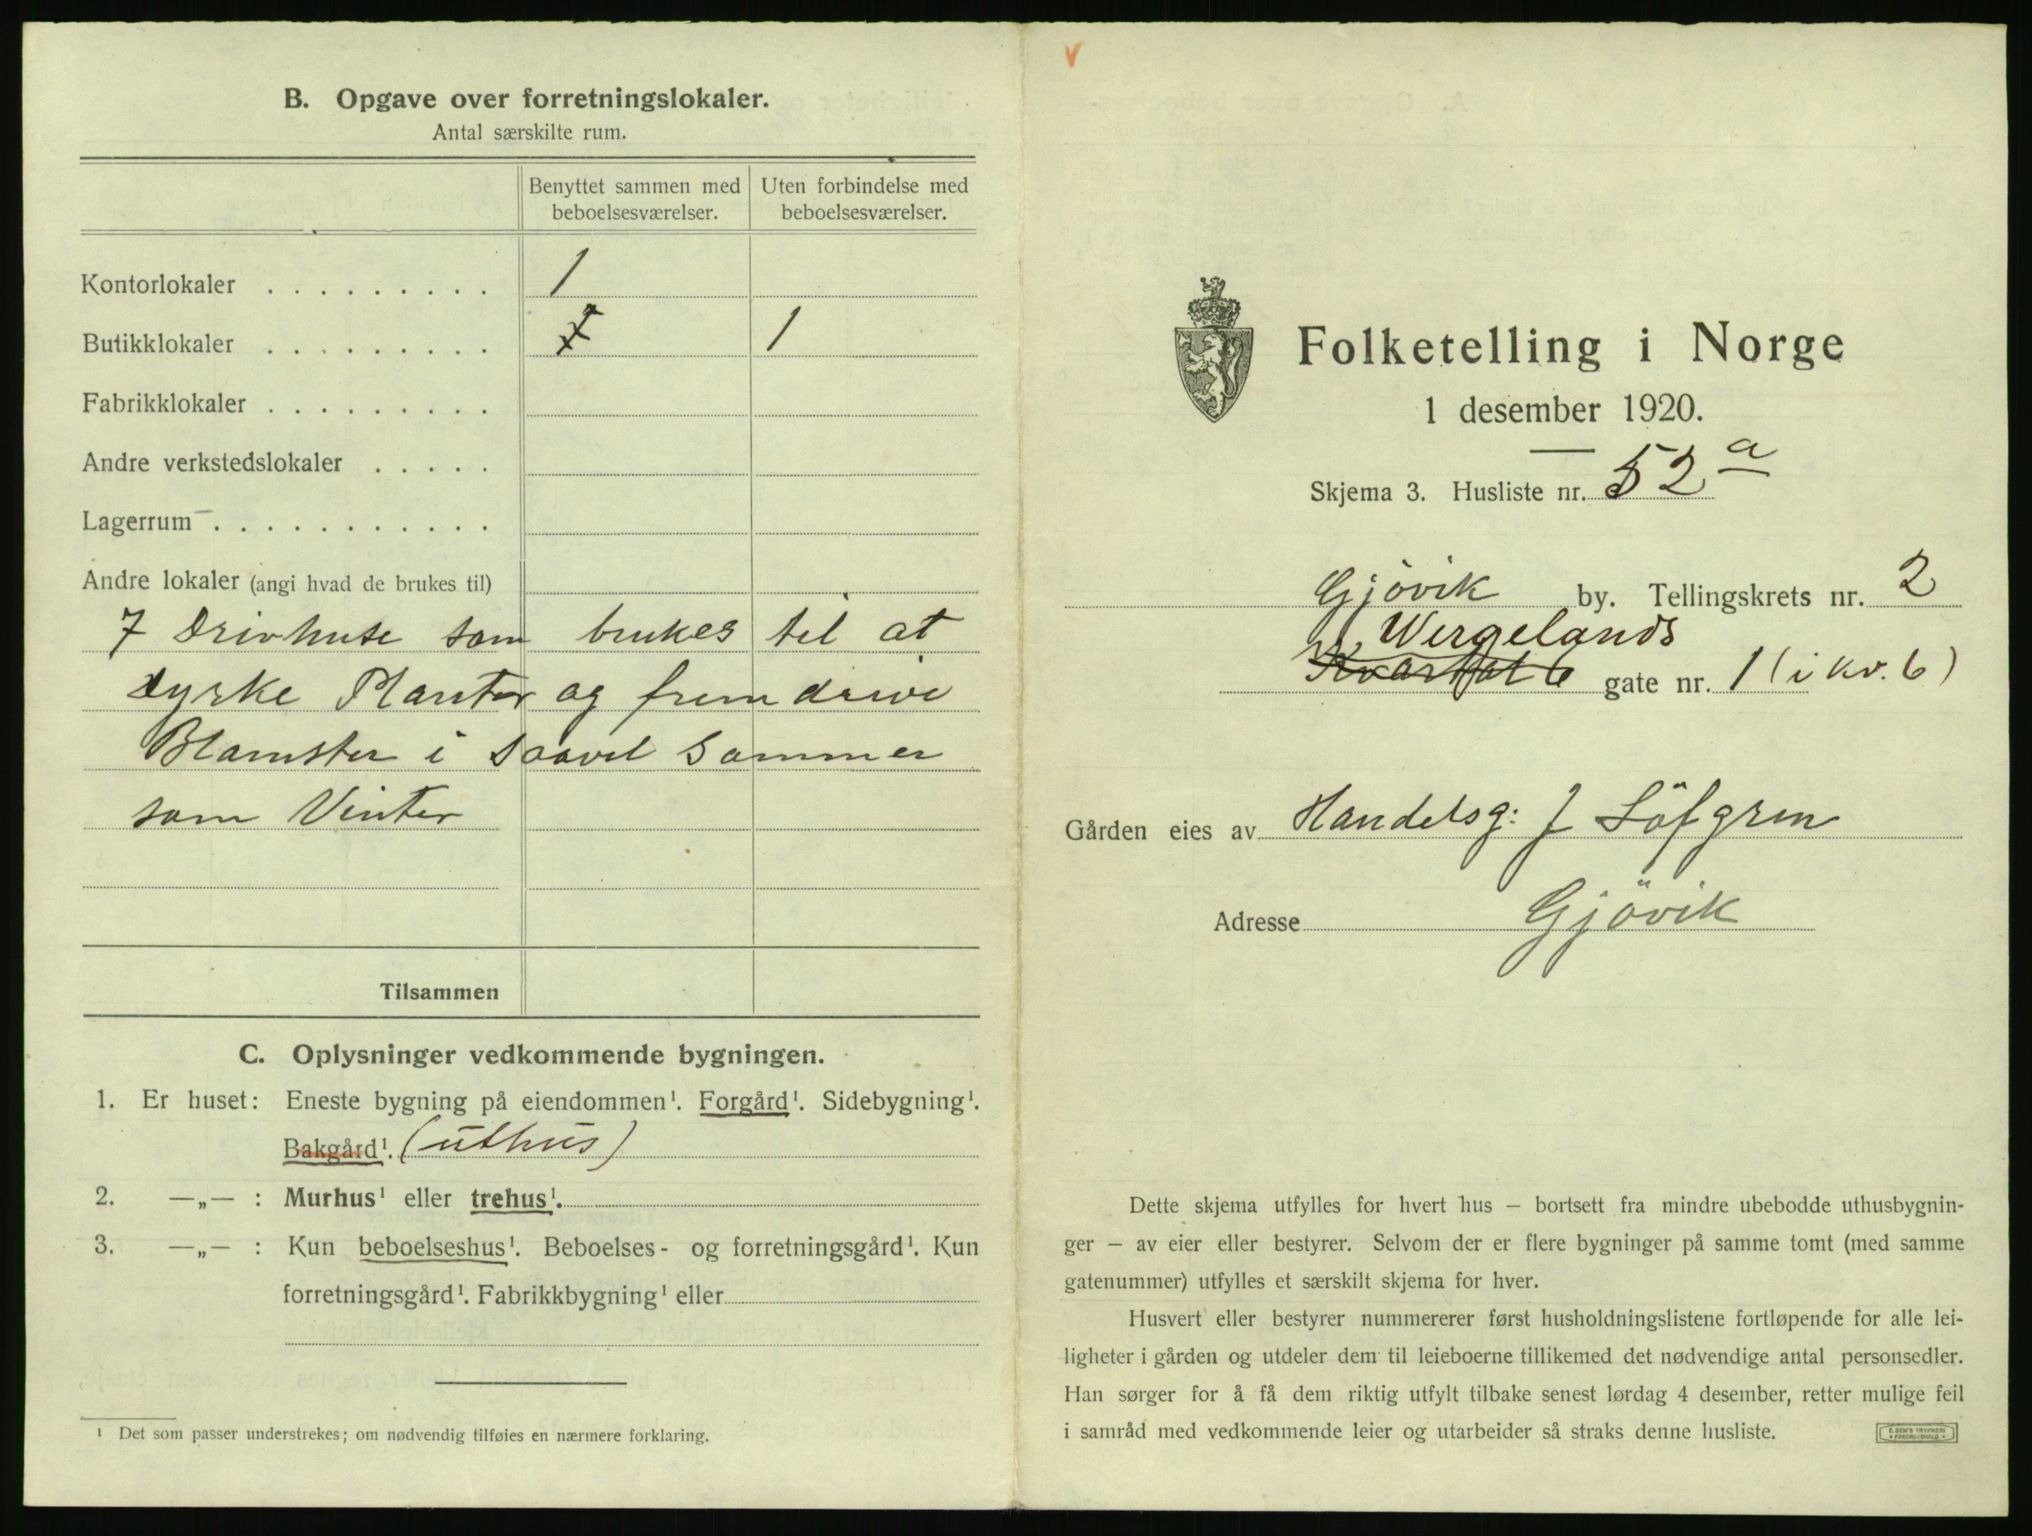 B. Opgave over forretningslokaler.
Antal særskilte rum.
Benyttet sammen med beboelsesværelser.
Uten forbindelse med beboelsesværelser.
Kontorlokaler . . . . . . . . . 1
Butikklokaler . . . . . . . . . 1
Fabrikklokaler . . . . . . . . .
Andre verkstedslokaler . . . . .
Lagerrum . . . . . . . . . . .
Andre lokaler (angi hvad de brukes til)
7 Drivhuse som brukes til at
dyrke Planter og fremdrive
Blomster i saavel Sommer
som Vinter
Tilsammen
C. Oplysninger vedkommende bygningen.
1. Er huset: Eneste bygning på eiendommen¹. Forgård¹. Sidebygning¹.
Bakgård¹. (uthus)
2. —„— : Murhus¹ eller trehus¹.
3. —„— : Kun beboelseshus¹. Beboelses- og forretningsgård¹. Kun
forretningsgård¹. Fabrikkbygning¹ eller
¹ Det som passer understrekes; om nødvendig tilføies en nærmere forklaring.
V
Folketelling i Norge
1 desember 1920.
Skjema 3. Husliste nr. 52 a
Gjövik by. Tellingskrets nr. 2
Wergelands
Kvartal 6 gate nr. 1 (i kv. 6)
Gården eies av Handelsg: J Löfgren
Adresse Gjövik
Dette skjema utfylles for hvert hus — bortsett fra mindre ubebodde uthusbygnin-
ger — av eier eller bestyrer. Selvom der er flere bygninger på samme tomt (med samme
gatenummer) utfylles et særskilt skjema for hver.
Husvert eller bestyrer nummererer først husholdningslistene fortløpende for alle lei-
ligheter i gården og utdeler dem til leieboerne tillikemed det nødvendige antal personsedler.
Han sørger for å få dem riktig utfylt tilbake senest lørdag 4 desember, retter mulige feil
i samråd med vedkommende leier og utarbeider så straks denne husliste.